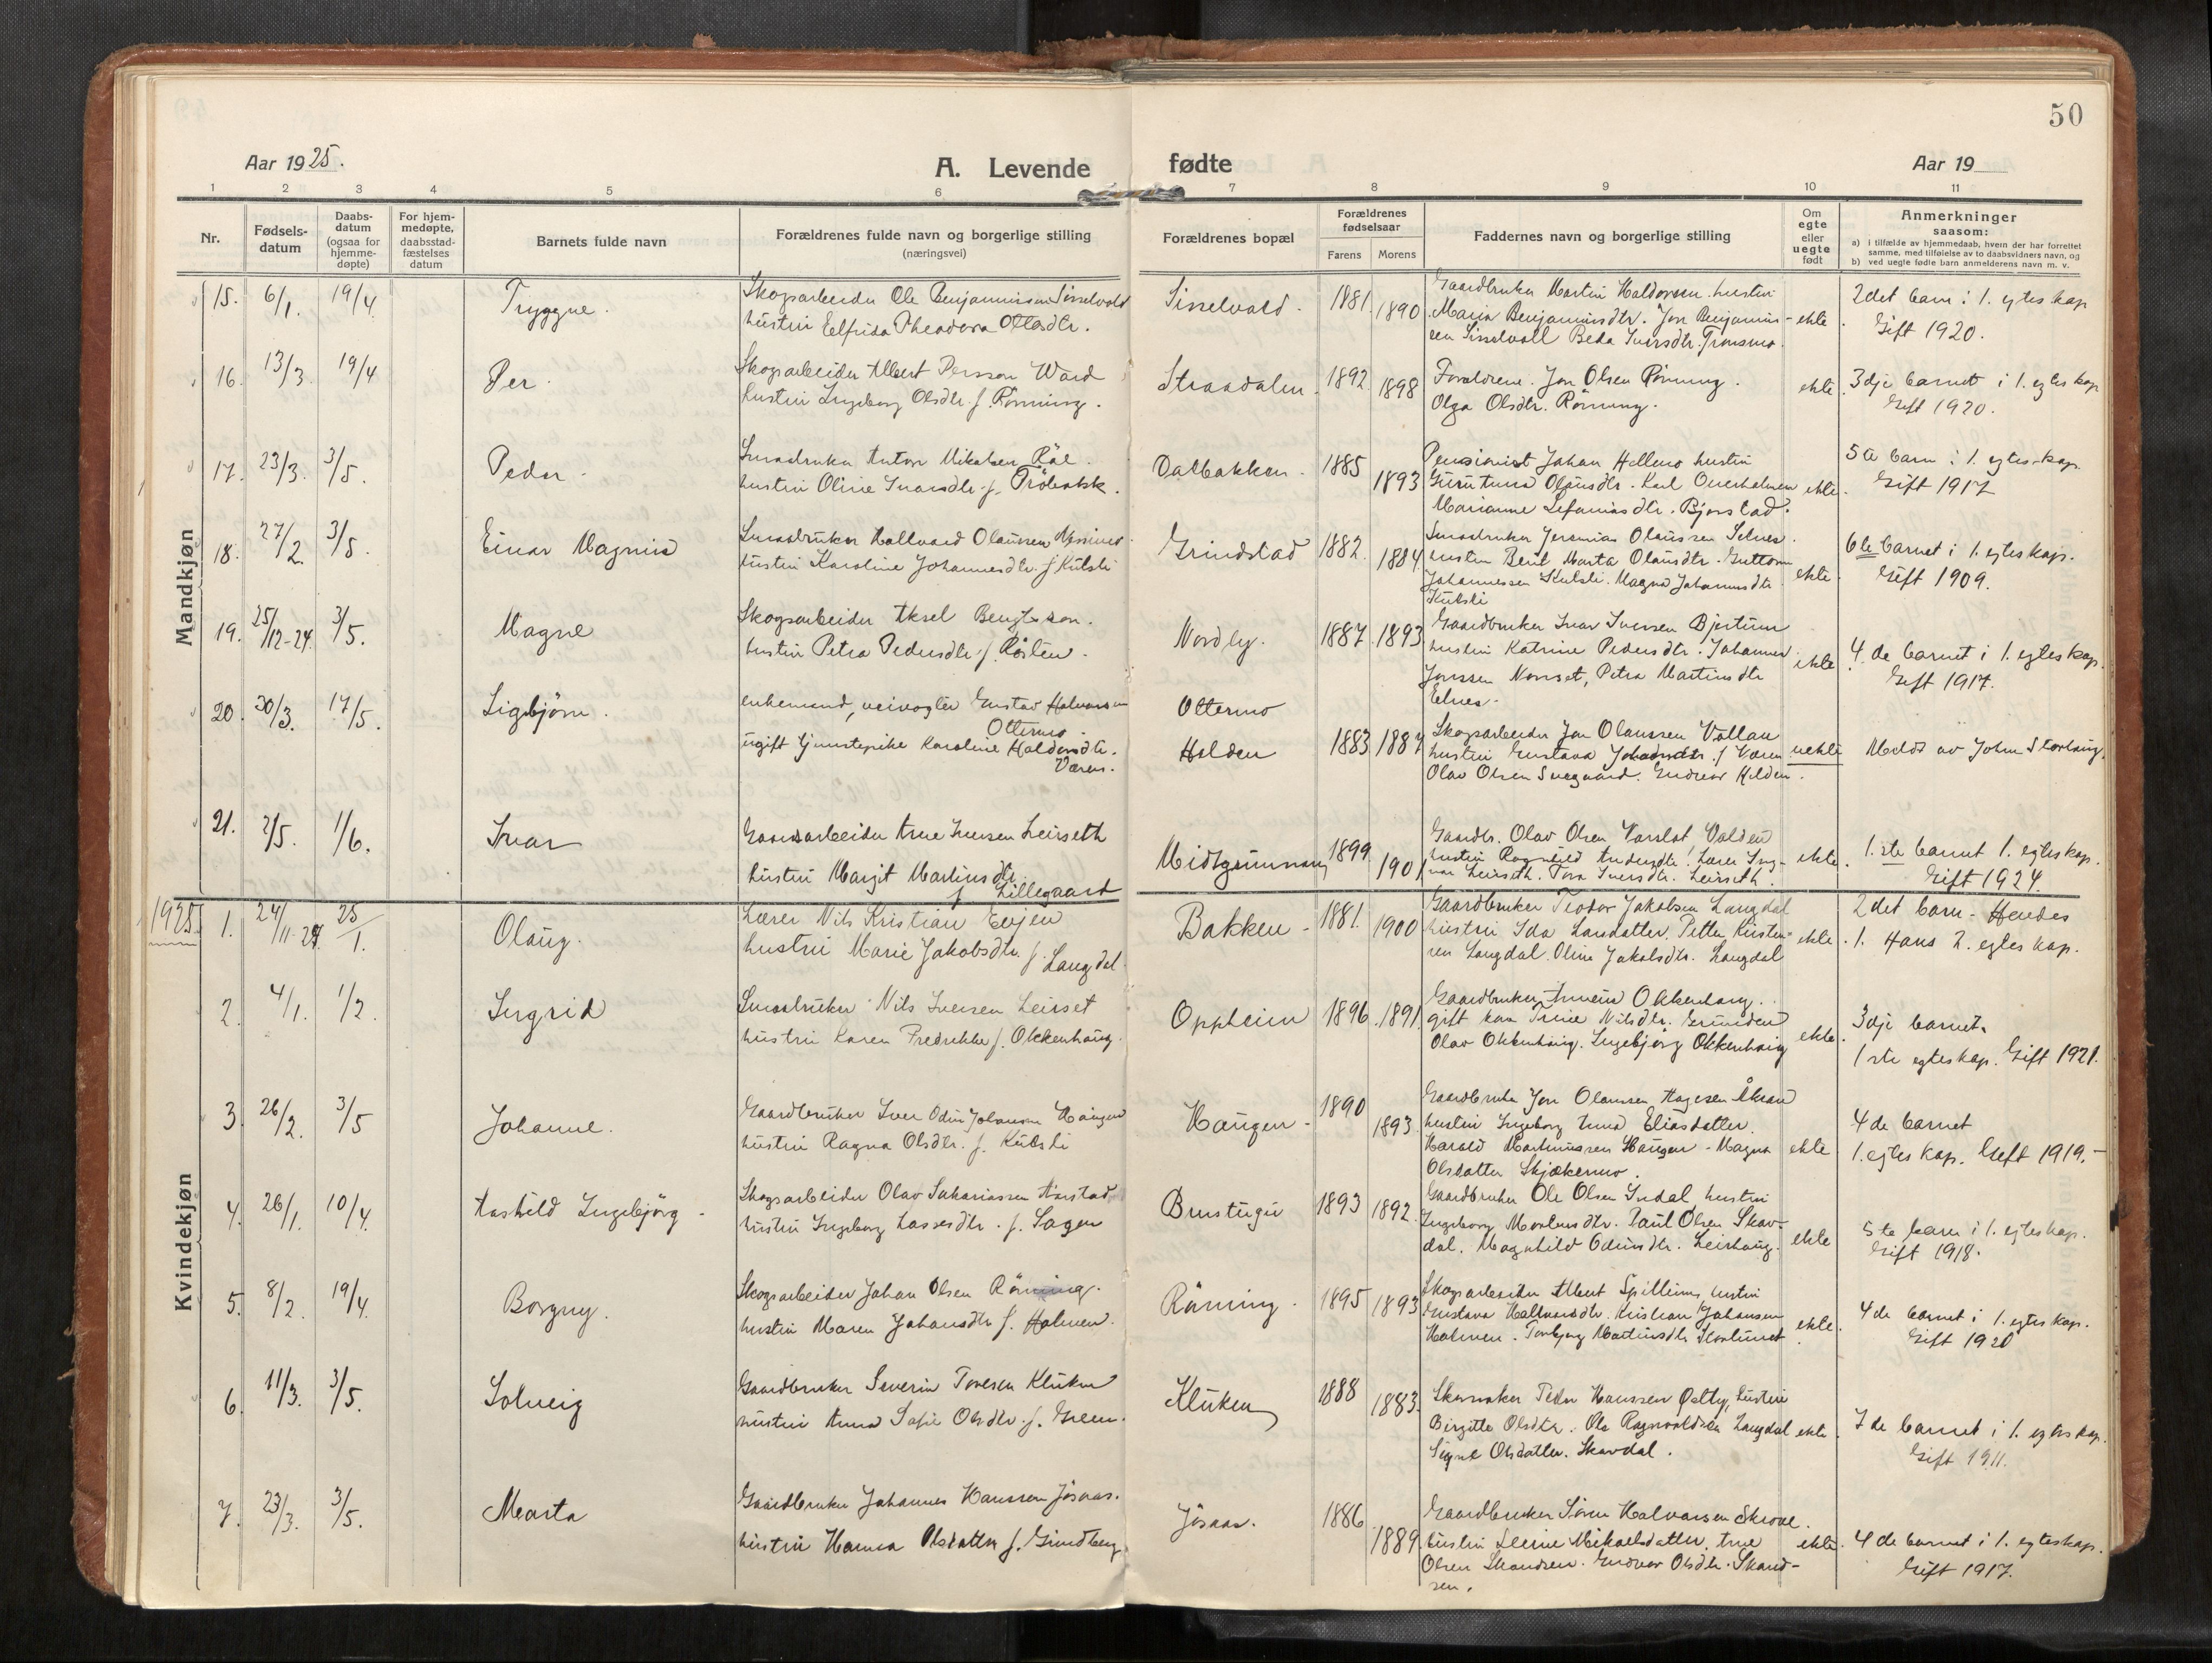 50
Aar 1925.
A. Levende fødte
Aar 19
1 2 3 4 5 6 7 8 9 10 11
Nr.
Fødsels-
datum
Daabs-
datum
(ogsaa for
hjemme-
døpte)
For hjem-
medøpte,
daabsstad-
fæstelses
datum
Barnets fulde navn
Forældrenes fulde navn og borgerlige stilling
(næringsvei)
Forældrenes bopæl
Forældrenes
fødselsaar
Farens Morens
Faddernes navn og borgerlige stilling
Om
egte
eller
uegte
født
Anmerkninger
saasom:
a) i tilfælde av hjemmedaab, hvem der har forrettet
samme, med tilføielse av to daabsvidners navn, og
b) ved uegte fødte barn anmelderens navn m. v.
Mandkjøn
15. 6/1. 19/4 Tryggve.
Skogsarbeider Ole Benjaminsen Sisselvold
hustru Elfrida Theodora Olesdtr.
Sisselvold. 1881. 1890
Gaardbruker Martin Haldorsen hustru
Maria Benjaminsdtr. Jon Benjamin-
sen Sisselvoll Beda Iversdtr. Tromsmo.
ekte.
2det barn i 1. egteskap
Gift 1920.
16. 13/3. 19/4 Per.
Skogsarbeider Albert Persson Ward
hustru Ingeborg Olsdtr. f. Rönning.
Straadalen. 1892. 1898
Forældrene. Jon Olsen Rönning.
Olga Olsdtr. Rönning.
ekte.
3dje barnet i 1. egteskap
Gift 1920.
17. 23/3. 3/5. Peder.
Smaabruker Anton Mikalsen
hustru Oline Ivarsdtr. f.
Dalbakken. 1885 1893
Pensionist Johan Hellmo hustru
Guru Anna Olausdtr. Karl Overholmen
Marianne Sefaniasdtr. Bjørstad.
ekte.
5te barn i 1. egteskap.
Gift 1917
18. 27/2. 3/5. Einar Magnus
Smaabruker Hallvard Olaussen
hustru Karoline Johannesdtr. f. Kulsli
Grindstad 1882. 1884.
Smaabruker Jeremias Olaussen Selnes.
hustru Berit Marta Olausdtr. Guttorm
Johannessen Kulsli. Magna Johannesdtr.
Kulsli
ekte.
6te barnet i 1. egteskap.
Gift 1909.
19. 25/12-24. 3/5. Magne
Skogsarbeider Aksel Bengtsson.
hustru Petra Pedersdtr. f. Røslien.
Nordly. 1887. 1893
Gaardbruker Ivar Iversen Bjartun
hustru Katrine Pedersdtr. Johannes
Jonssen Nonset, Petra Martinsdtr
Elnes.
ekte
4. de barnet i 1. egteskap.
Gift 1917.
20. 30/3. 17/5. Sigbjörn.
enkemand, veivogter Gustav Halvorsen
Ottermo.
ugift tjenestepike Karoline Haldorsdtr.
Væren.
Ottermo
Holden 1883 1887
Skogsarbeider Jon Olaussen Vollan
hustru Gustava f. Væren
Olav Olsen Suegaard. Gudrun Holden.
uekte
Meldt av Johan Storhaug.
21. 2/5. 1/6. Ivar
Gaardsarbeider Arne Iversen Leirseth
hustru Margit Martinsdtr.
f. Lillegaard
Midtgrunnan 1899 1901
Gaardbr. Olav Olsen Valden
hustru Ragnhild Andersdtr. Lærer Ing-
var Leirseth. Tora Iversdtr. Leirseth.
ekte.
1.ste barnet 1. egteskap.
Gift 1924.
Kvindekjøn
1925. 1. 24/11-24. 25/1. Olaug.
Lærer Nils Kristian Evjen
hustru Marie Jakobsdtr. f. Langdal.
Bakken 1881. 1900
Gaardbruker Teodor Jakobsen Langdal
hustru Ida Larsdatter. Petter Kristen-
sen Langdal. Oline Jakobsdtr. Langdal
ekte.
2det barn - Hendes
1. Hans 2. egteskap.
2. 4/1. 1/2. Ingrid
Smaabruker Nils Iversen Leirset
hustru Karen Fredrikke f. Okkenhaug.
Oppheim 1896. 1891.
Gaardbruker Okkenhaug.
gift kone Trine Nilsdtr. Grunden
Olav Okkenhaug. Ingebjørg Okkenhaug
ekte.
3dje barnet.
1ste egteskap. Gift 1921.
3. 26/2. 3/5 Johanne.
Gaardbruker Iver Odin Johansen Haugen
hustru Ragna Olsdtr. f. Kulsli
Haugen 1890 1893.
Gaardbruker Jon Olaussen Aagesen
hustru Ingeborg Anna Eliasdatter.
Harald Martinussen Haugen - Magna
Olsdatter Skjækermo.
ekte
4de barnet
1. egteskap. Gift 1919.
4. 26/1. 10/4. Aashild Ingebjörg
Skogsarbeider Olav Sakariassen Aarstad
hustru Ingeborg Lassesdtr. f. Sagen
Burstugu 1893 1892.
Gaardbruker Ole Olsen Indal hustru
Ingeborg Martinsdtr. Paul Olsen Skav-
dal. Magnhild Odinsdtr. Leirhaug.
ekte
5te barn i 1. egteskap.
Gift 1918.
5. 8/2. 19/4. Borgny.
Skogsarbeider Johan Olsen Rönning.
hustru Maren Johansdtr f. Holmen.
Rönning. 1895 1893
Skogsarbeider Albert Spillum, hustru
Gustava Hallvardsdtr. Kristian Johansen
Holmen. Torbjørg Martinsdtr
ekte.
4de barnet i 1. egteskap.
Gift 1920
6. 11/3. 3/5. Solveig
Gaardbruker Severin Toresen Kluken
hustru Anna Sofie Olsdtr. f. Green.
Kluken 1888 1883.
Skomaker Peder Hanssen Østby, hustru
Birgitte Olsdtr. Ole Ragnvaldsen Langdal
Signe Olsdatter. Skavdal.
ekte.
7de barnet i 1. egteskap.
Gift 1911.
7. 23/3. 3/5. Marta
Gaardbruker Johannes Hanssen Jösaas.
hustru Hanna Olsdatter f. Grindberg
Jösaas. 1886 1889.
Gaardbruker Sören Halvorsen Skrove.
hustru Mikaelsdatter, Arne
Olsen Skandsen. Gudvor Olsdtr. Skand-
sen.
ekte.
4de barnet i 1. egteskap.
Gift 1917.